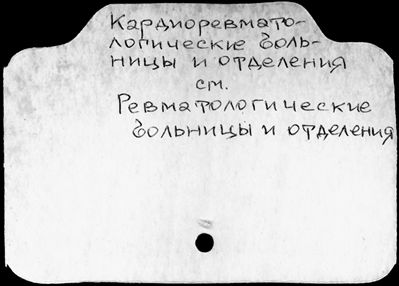 Кардиоревмато-
логические боль-
ницы и отделения
см.
Ревматологические
больницы и отделения